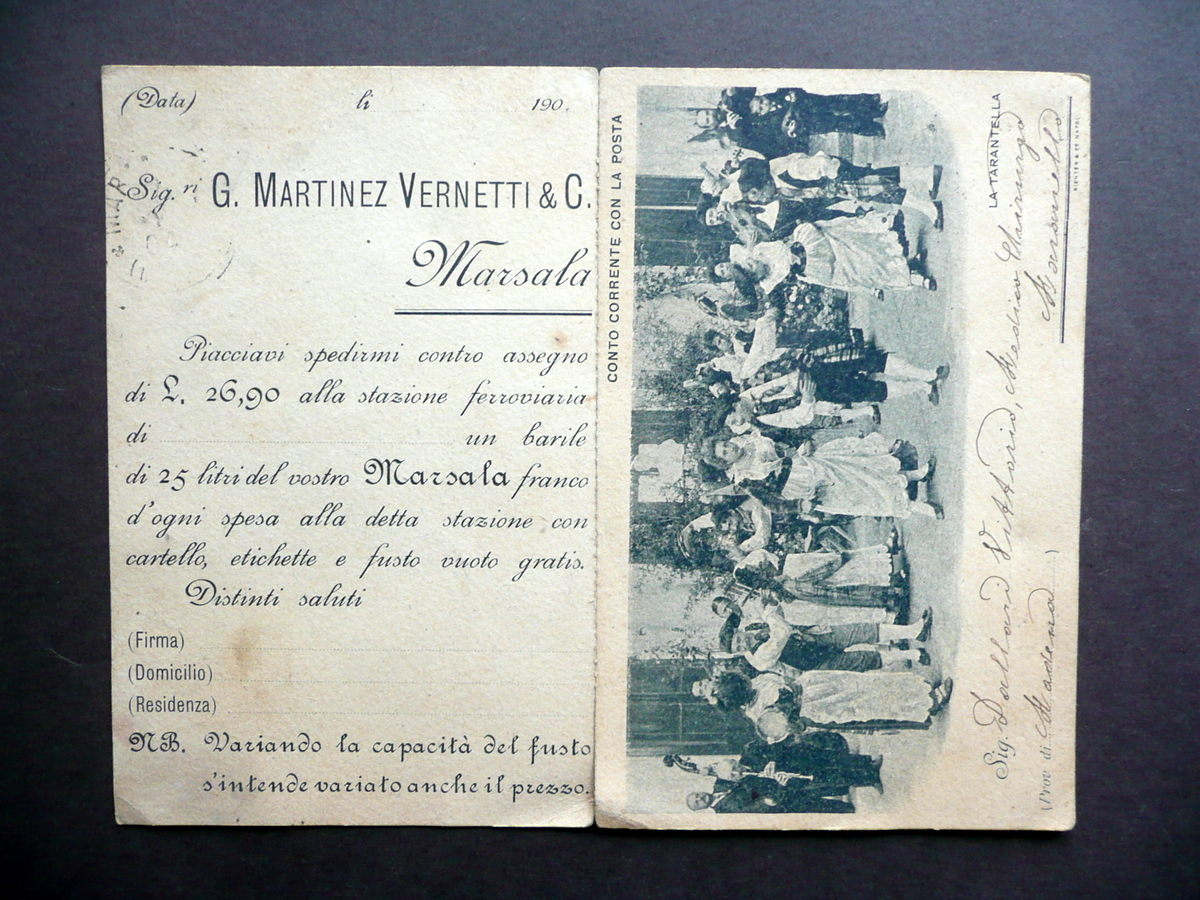 (Data) li 190.
Sig.ri G. MARTINEZ VERNETTI & C.
Marsala
Piacciavi spedirmi contro assegno
di L. 26,90 alla stazione ferroviaria
di un barile
di 25 litri del vostro Marsala franco
d'ogni spesa alla detta stazione con
cartello, etichette e fusto vuoto gratis.
Distinti saluti
(Firma)
(Domicilio)
(Residenza)
NB. Variando la capacità del fusto
s'intende variato anche il prezzo.
CONTO CORRENTE CON LA POSTA
LA TARANTELLA
Sig. Dallari Vittorio, Medico Chirurgo
(Prov. di Modena)